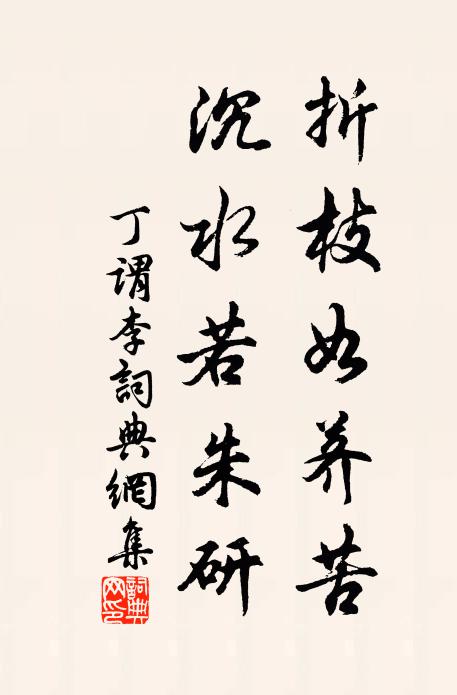 折枝如荞苦
沉水若朱研
丁谓李詞典網集
詞典網印